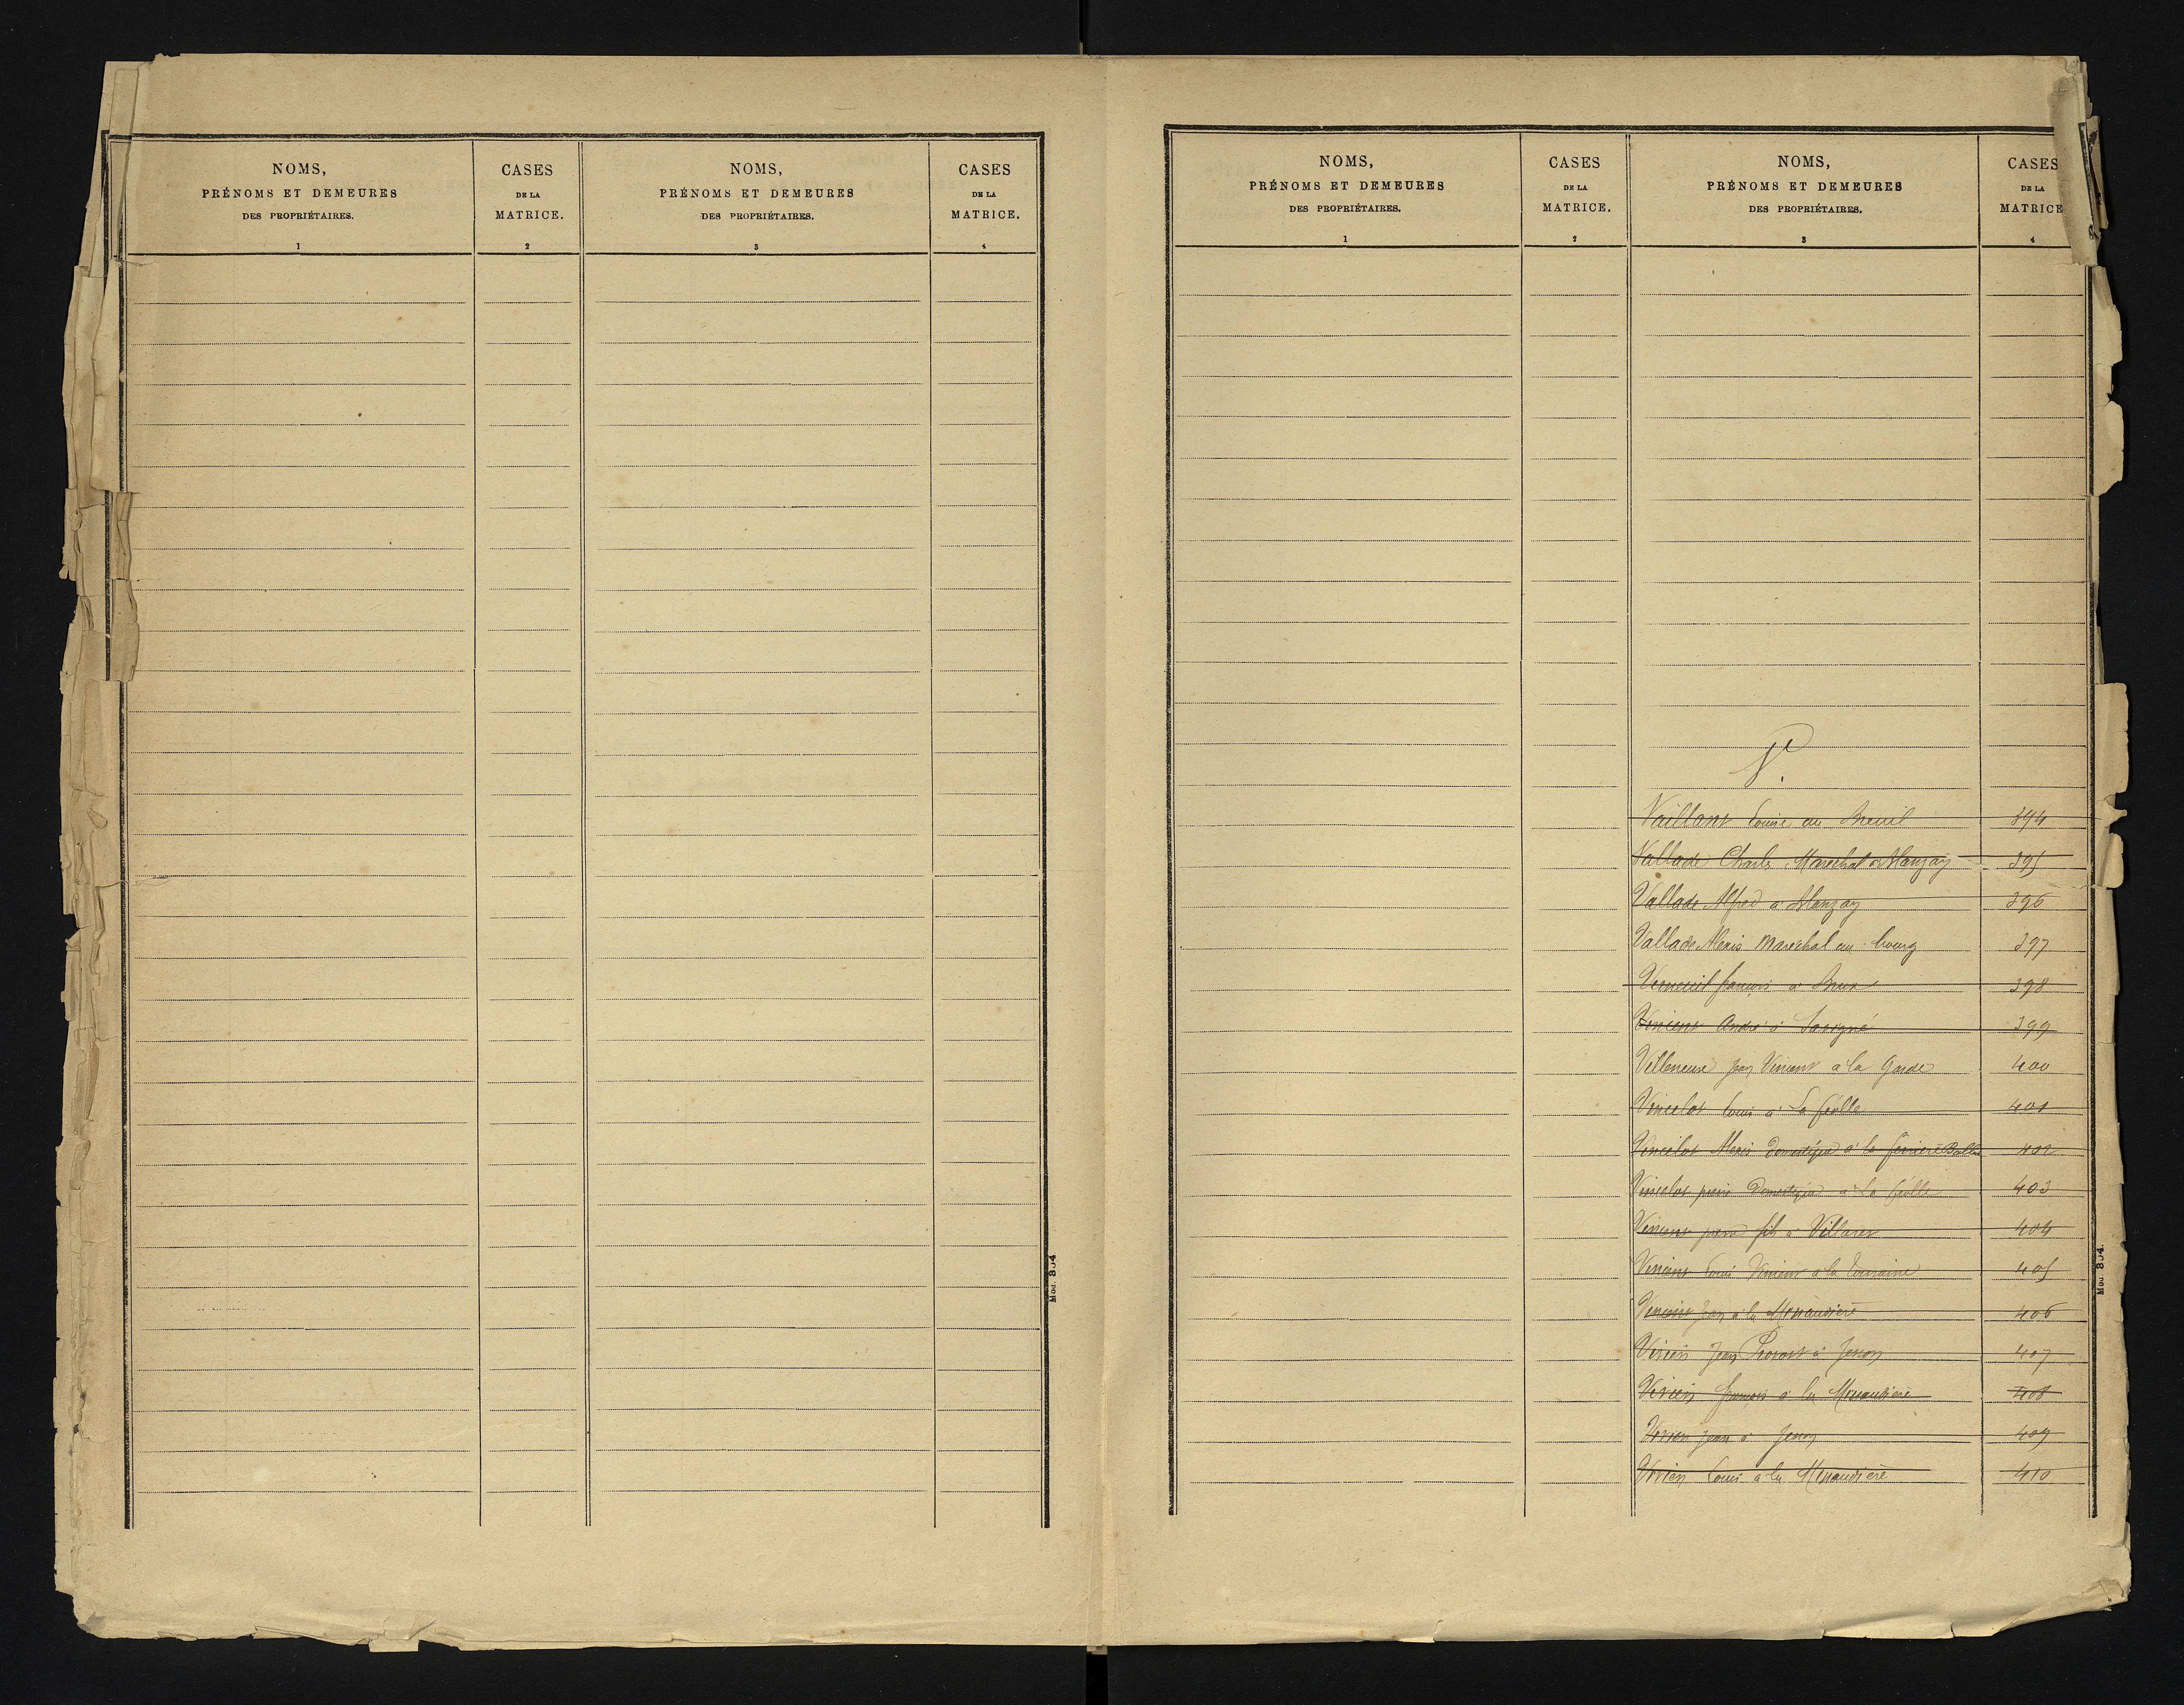 NOMS,
PRÉNOMS ET DEMEURES
DES PROPRIÉTAIRES.
1
CASES
DE LA
MATRICE.
2
NOMS,
PRÉNOMS ET DEMEURES
DES PROPRIÉTAIRES.
3
CASES
DE LA
MATRICE.
4
Mod. 804
NOMS,
PRÉNOMS ET DEMEURES
DES PROPRIÉTAIRES.
1
CASES
DE LA
MATRICE.
2
NOMS,
PRÉNOMS ET DEMEURES
DES PROPRIÉTAIRES.
3
CASES
DE LA
MATRICE
4
V.
Vaillant Louis au Breuil 394
Vallade Charles Maréchal à Manzay 395
Vallade Alfred à Manzay 396
Vallade Alexis Maréchal au bourg 397
Verneuil françois à Brux 398
Vincent André à Savigné 399
Villeneuve Jean Vincent à la Garde 400
Vincelot Louis à La féolle 401
Vincelot Alexis Domestique à la ferrière 402
Vincelot pierre Domestique à La féolle 403
Vincent pierre fils à Villaret 404
Vincent Louis Vincent à la Touraine 405
Vincent Jean à la 406
Vivien Jean Provost à Jesson 407
Vivien françois à la 408
Vivien Jean à Jesson 409
Vivien Louis à la 410
Mod. 804.